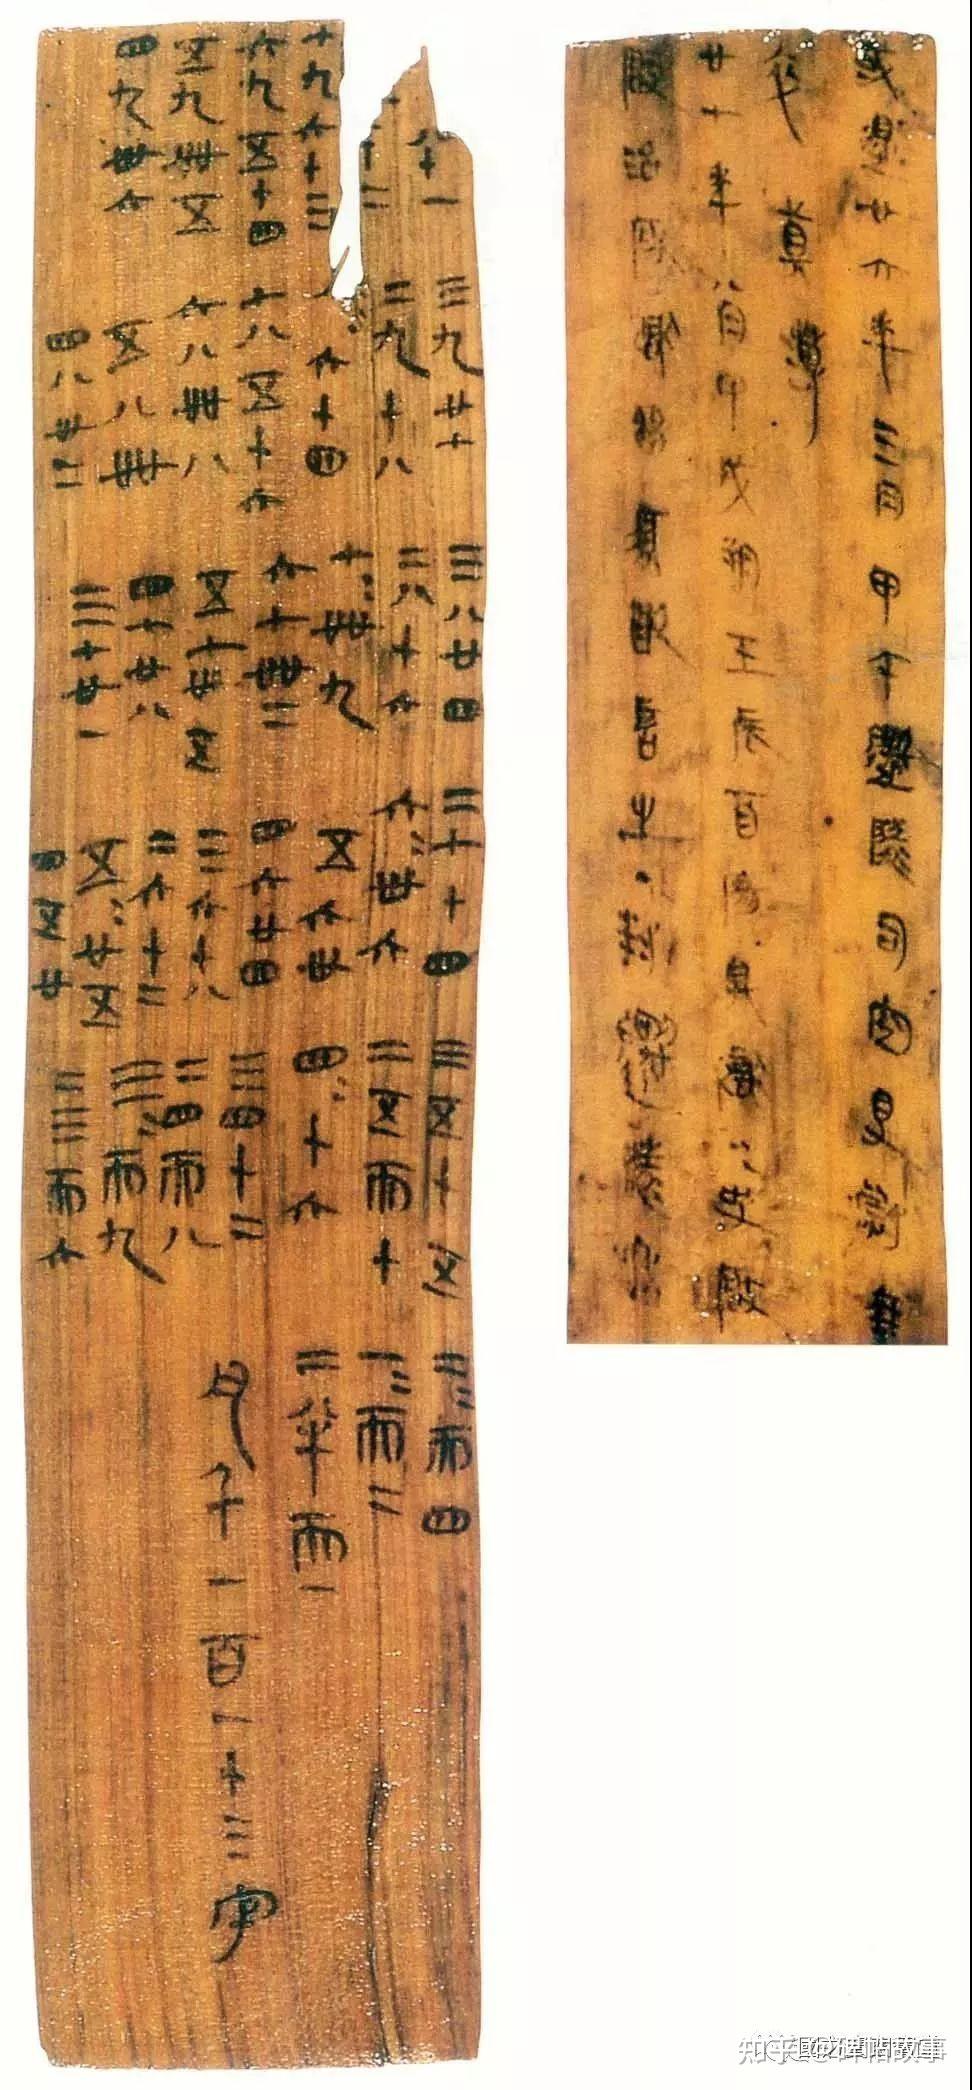 八十一
十二
七九六十三
六九五十四
五九卌五
四九卅六
三九廿七
二九十八
八=六十四
七八五十六
六八卌八
五八卌
四八卅二
三八廿四
二八十六
七=卌九
六七卌二
五七卅五
四七廿八
三七廿一
二七十四
六=卅六
五六卅
四六廿四
三六十八
二六十二
五=廿五
四五廿
三五十五
二五而十
四=十六
三四十二
二四而八
三=而九
二三而六
二=而四
一=而二
二半而一
凡千一百一十三字
或遝廿六年三月甲午遷陵司空得尉乘
卒真薄
廿七年八月甲戌朔壬辰酉陽具獄=史啓敢
啓治所獄留須敢言之·封遷陵丞
知乎 @碑帖故事